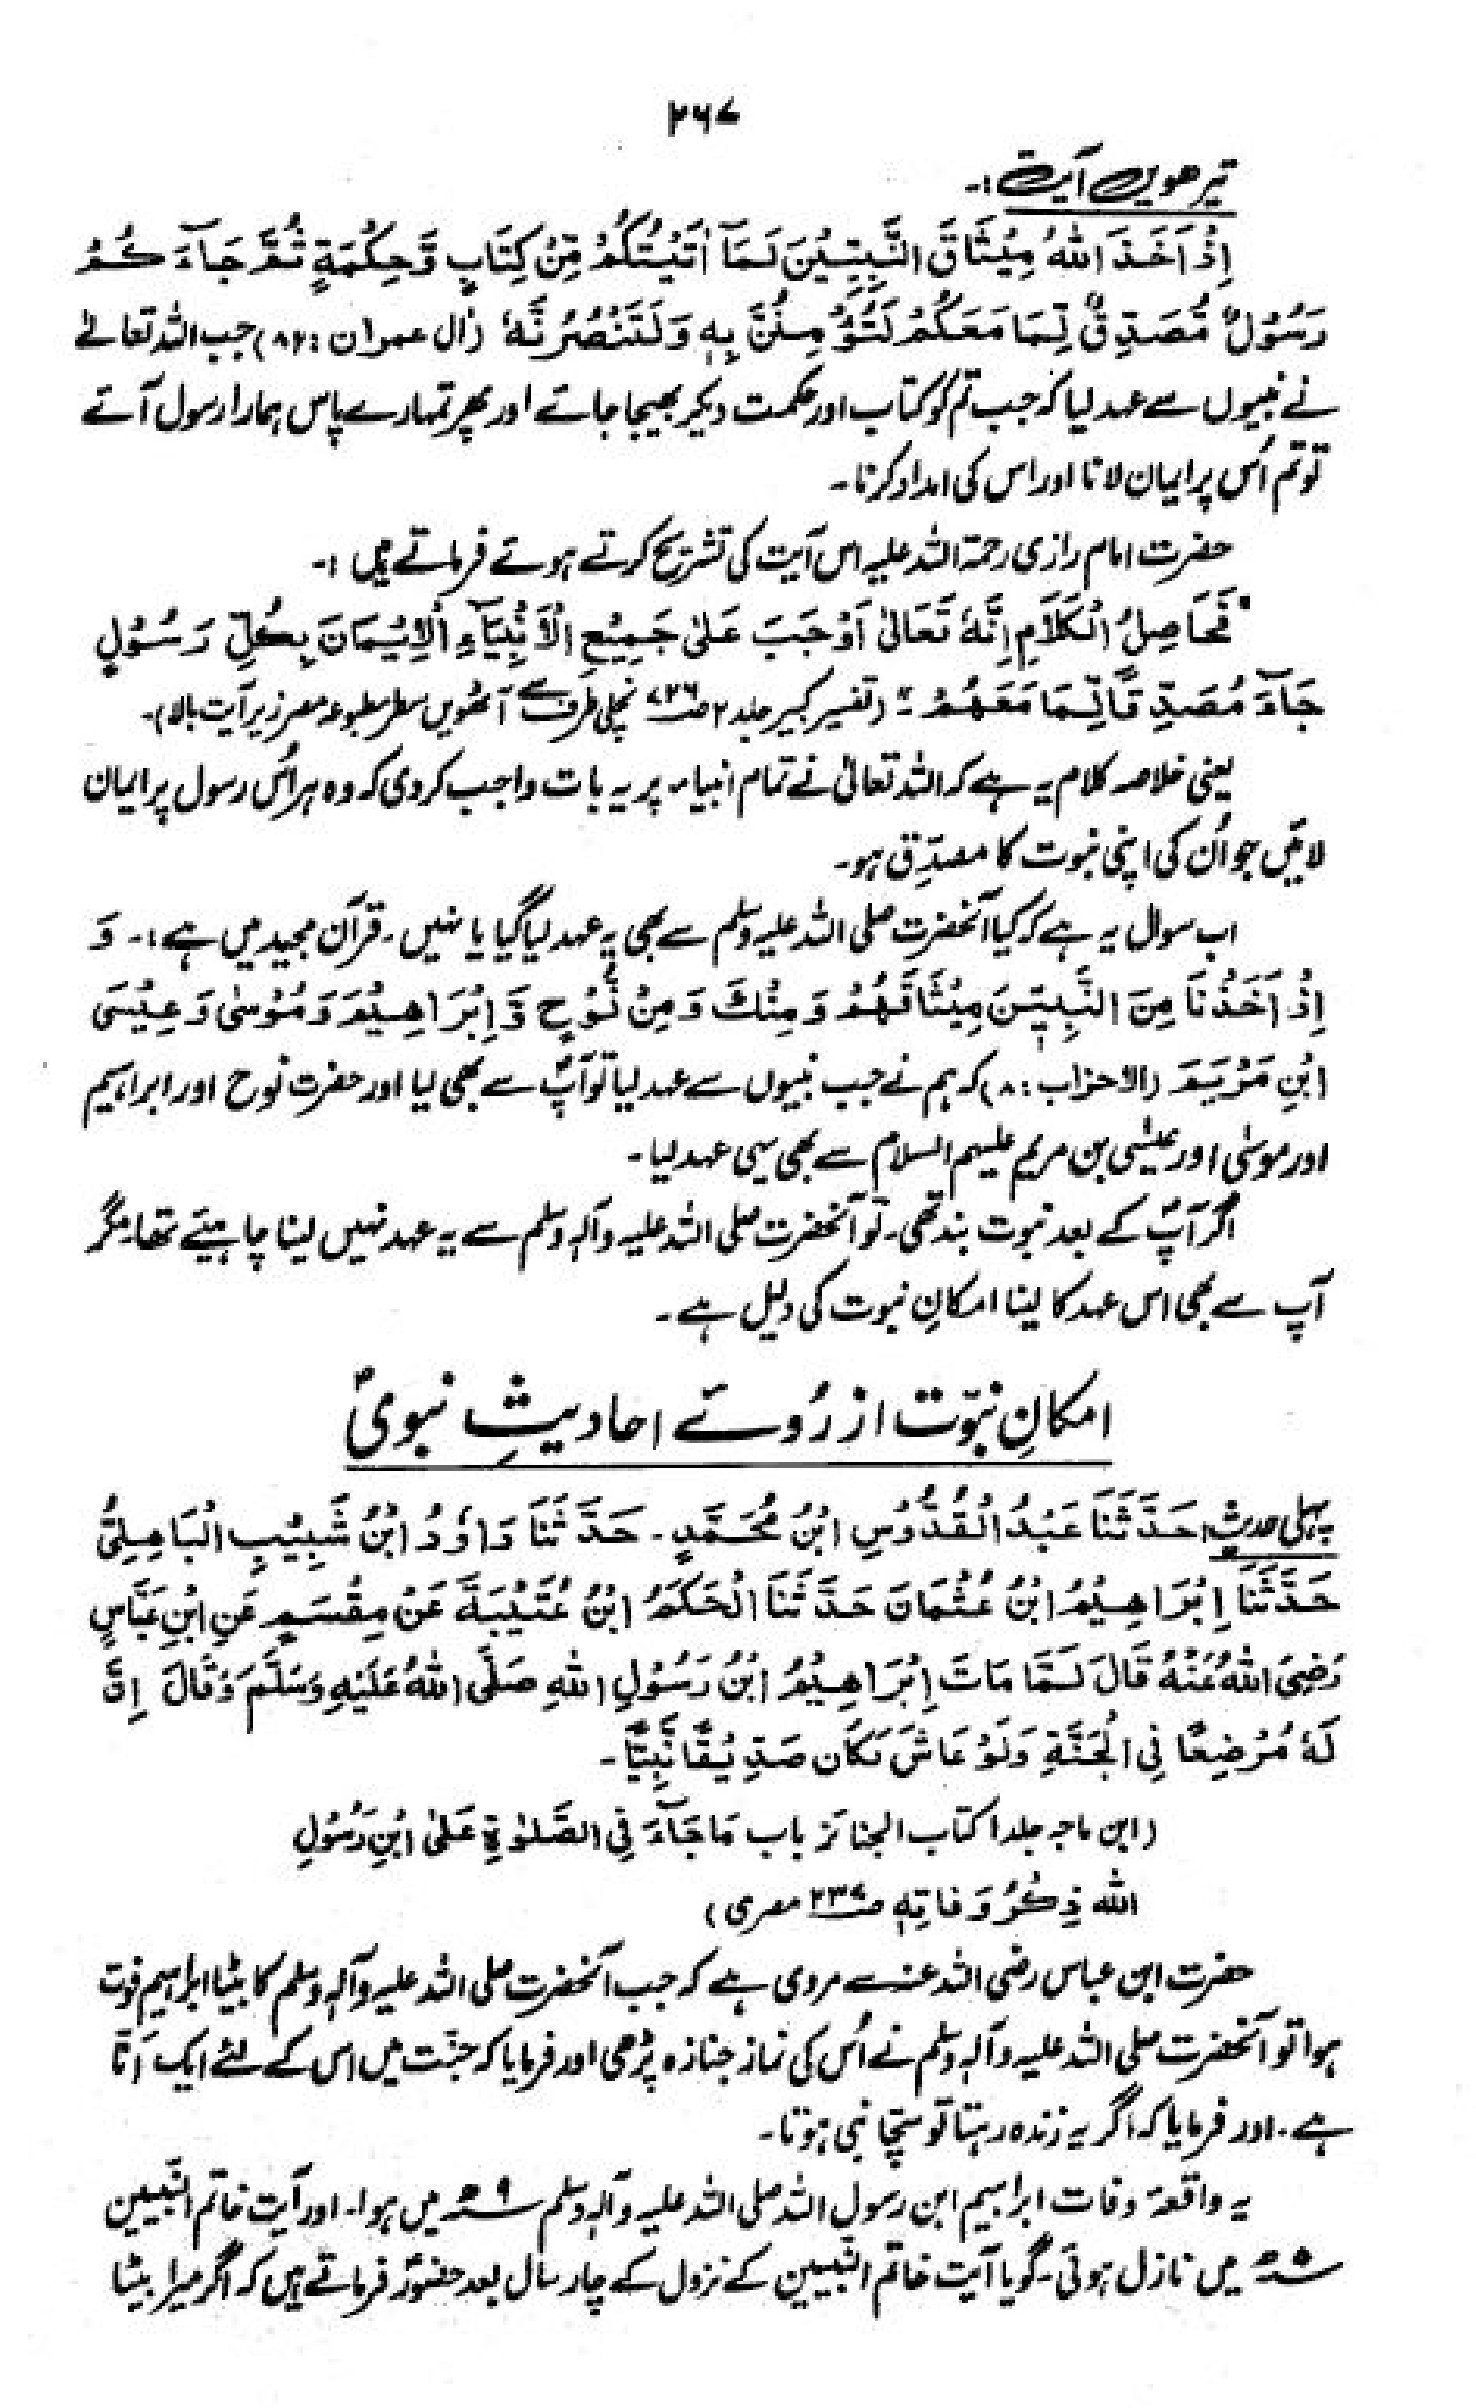 ۲۶۷
تیرھویں آیت:۔
اِذْ اَخَذَ اللّٰهُ مِيْثَاقَ النَّبِيّٖنَ لَمَآ اٰتَيْتُكُمْ مِّنْ كِتَابٍ وَّحِكْمَةٍ ثُمَّ جَآءَ كُمْ
رَسُوْلٌ مُّصَدِّقٌ لِّمَا مَعَكُمْ لَتُؤْمِنُنَّ بِهٖ وَلَتَنْصُرُنَّهٗ (اٰل عمران :۸۲) جب اللہ تعالےٰ
نے نبیوں سے عہد لیا کہ جب تم کو کتاب اور حکمت دیکر بھیجا جائے اور پھر تمہارے پاس ہمارا رسول آئے
تو تم اُس پر ایمان لانا اور اس کی امداد کرنا۔
حضرت امام رازی رحمۃ اللہ علیہ اس آیت کی تشریح کرتے ہوئے فرماتے ہیں :۔
"فَحَاصِلُ الْكَلَامِ اِنَّهٗ تَعَالٰى اَوْجَبَ عَلٰى جَمِيْعِ الْاَنْبِيَآءِ الْاِيْمَانَ بِكُلِّ رَسُوْلٍ
جَآءَ مُصَدِّقًا لِّمَا مَعَهُمْ ۔" (تفسیر کبیر جلد ۲ ص۷۲۶ نچلی طرف سے آٹھویں سطر مطبوعہ مصر زیر آیت بالا)۔
یعنی خلاصہ کلام یہ ہے کہ اللہ تعالیٰ نے تمام انبیاء پر یہ بات واجب کر دی کہ وہ ہر اُس رسول پر ایمان
لائیں جو اُن کی اپنی نبوت کا مصدّق ہو۔
اب سوال یہ ہے کہ کیا آنحضرت صلی اللہ علیہ وسلم سے بھی یہ عہد لیا گیا یا نہیں ۔ قرآن مجید میں ہے :۔ وَ
اِذْ اَخَذْنَا مِنَ النَّبِيّٖنَ مِيْثَاقَهُمْ وَمِنْكَ وَمِنْ نُّوْحٍ وَّاِبْرَاهِيْمَ وَمُوْسٰى وَعِيْسَى
ابْنِ مَرْيَمَ (الاحزاب :۸) کہ ہم نے جب نبیوں سے عہد لیا تو آپؐ سے بھی لیا اور حضرت نوح اور ابراہیم
اور موسٰی اور عیسٰی بن مریم علیہم السلام سے بھی یہی عہد لیا ۔
اگر آپؐ کے بعد نبوت بند تھی ۔ تو آنحضرت صلی اللہ علیہ وآلہٖ وسلم سے یہ عہد نہیں لینا چاہیئے تھا۔ مگر
آپ سے بھی اس عہد کا لینا امکانِ نبوت کی دلیل ہے ۔
امکانِ نبوّت از رُوئے احادیثِ نبویؐ
پہلی حدیث: حَدَّثَنَا عَبْدُ الْقُدُّوْسِ ابْنُ مُحَمَّدٍ ۔ حَدَّثَنَا دَاوٗدُ ابْنُ شَبِيْبٍ الْبَاهِلِيُّ
حَدَّثَنَا اِبْرَاهِيْمُ ابْنُ عُثْمَانَ حَدَّثَنَا الْحَكَمُ ابْنُ عُتَيْبَةَ عَنْ مِقْسَمٍ عَنِ ابْنِ عَبَّاسٍ
رَضِيَ اللّٰهُ عَنْهُ قَالَ لَمَّا مَاتَ اِبْرَاهِيْمُ ابْنُ رَسُوْلِ اللّٰهِ صَلَّى اللّٰهُ عَلَيْهِ وَسَلَّمَ وَقَالَ اِنَّ
لَهٗ مُرْضِعًا فِي الْجَنَّةِ وَلَوْ عَاشَ لَكَانَ صِدِّيْقًا نَّبِيًّا ۔
(ابن ماجہ جلد ۱ کتاب الجنائز باب مَا جَآءَ فِي الصَّلٰوةِ عَلَى ابْنِ رَسُوْلِ
اللّٰهِ ذِكْرُ وَفَاتِهٖ ص۲۳۷ مصری)
حضرت ابن عباس رضی اللہ عنہ سے مروی ہے کہ جب آنحضرت صلی اللہ علیہ وآلہٖ وسلم کا بیٹا ابراہیم فوت
ہوا تو آنحضرت صلی اللہ علیہ وآلہٖ وسلم نے اُس کی نماز جنازہ پڑھی اور فرمایا کہ جنّت میں اس کے لئے ایک اَنّا
ہے ۔ اور فرمایا کہ اگر یہ زندہ رہتا تو سچّا نبی ہوتا ۔
یہ واقعۂ وفات ابراہیم ابن رسول اللہ صلی اللہ علیہ وآلہٖ وسلم ۹ھ میں ہوا۔ اور آیت خاتم النّبیین
۵ھ میں نازل ہوئی ۔ گویا آیت خاتم النّبیین کے نزول کے چار سال بعد حضورؐ فرماتے ہیں کہ اگر میرا بیٹا